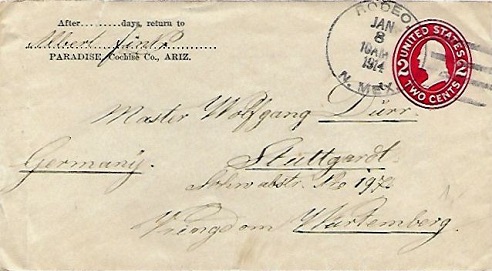 After.........days, return to
Albert
PARADISE, Cochise Co., ARIZ.
RODEO,
JAN
8
10AM
1914
N. MEX.
UNITED STATES
2 2
TWO CENTS
Master Wolfgang Dürr.
Germany. Stuttgardt.
Schwabstr. No 197
Kingdom Würtemberg.